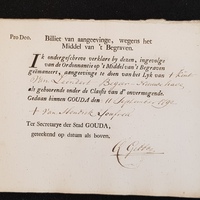 Pro Deo. Billiet van aangeevinge, wegens het
Middel van 't Begraven.
IK ondergeschreven verklare by dezen, ingevolge
van de Ordonnantie op 't Middel van 't Begraven
geëmaneert, aangeevinge te doen van het Lyk van
als gehoorende onder de Classis van d' onvermogende.
Gedaan binnen GOUDA den 11 September
van Hendrik
Ter Secretarye der Stad GOUDA,
geteekend op datum als boven,